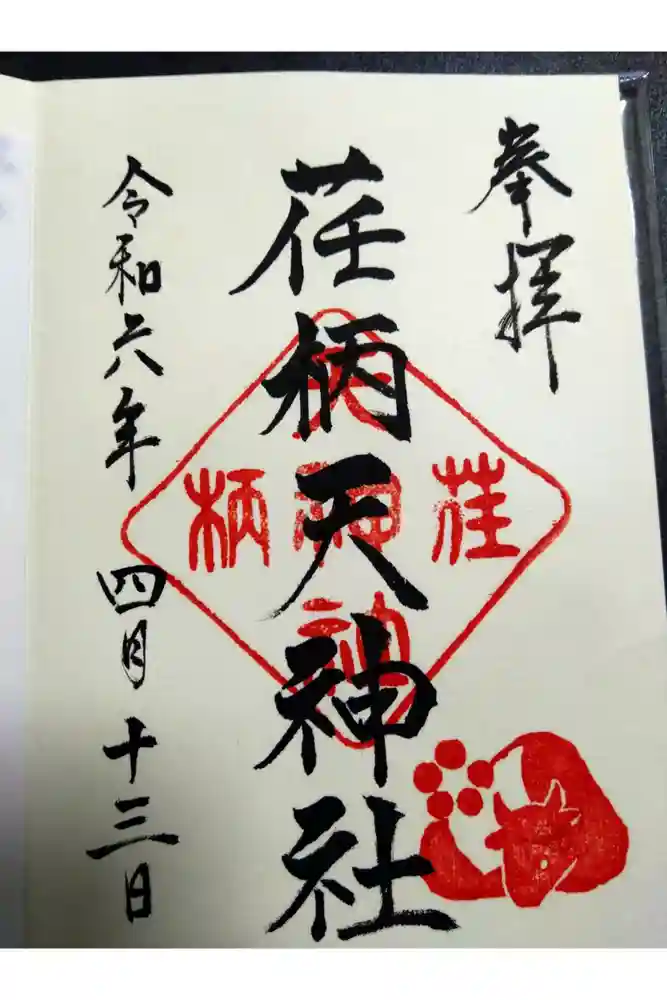 奉拝
荏柄天神社
令和六年四月十三日
荏
柄